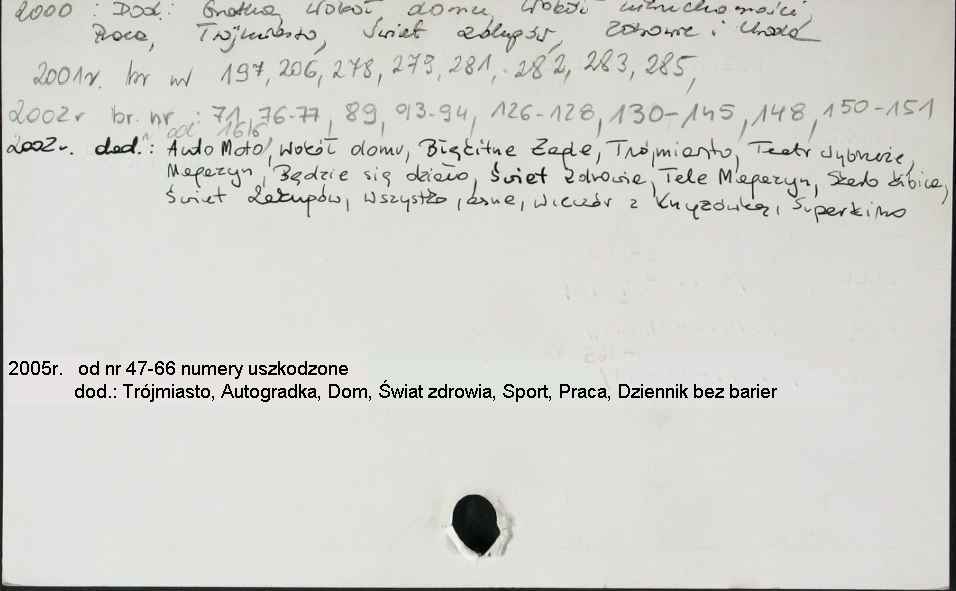 2000 : Dod.: Gratka, Wokół domu, Wokół nieruchomości,
Praca, Trójmiasto, Świat zakupów, Zdrowie i Uroda
2001r. br nr 197, 206, 278, 279, 281, 282, 283, 285,
2002r br. nr : 71, 76-77, 89, 93-94, 126-128, 130-145, 148, 150-151
od. 166
2002r. dod.: Auto Moto, Wokół domu, Błękitne Żagle, Trójmiasto, Teatr Wybrzeże,
Magazyn, Będzie się działo, Świat zdrowia, Tele Magazyn, Skarb kibica,
Świat Zakupów, Wszystko jasne, Wieczór z Krzyżówką, Superkino
2005r. od nr 47-66 numery uszkodzone
dod.: Trójmiasto, Autogradka, Dom, Świat zdrowia, Sport, Praca, Dziennik bez barier